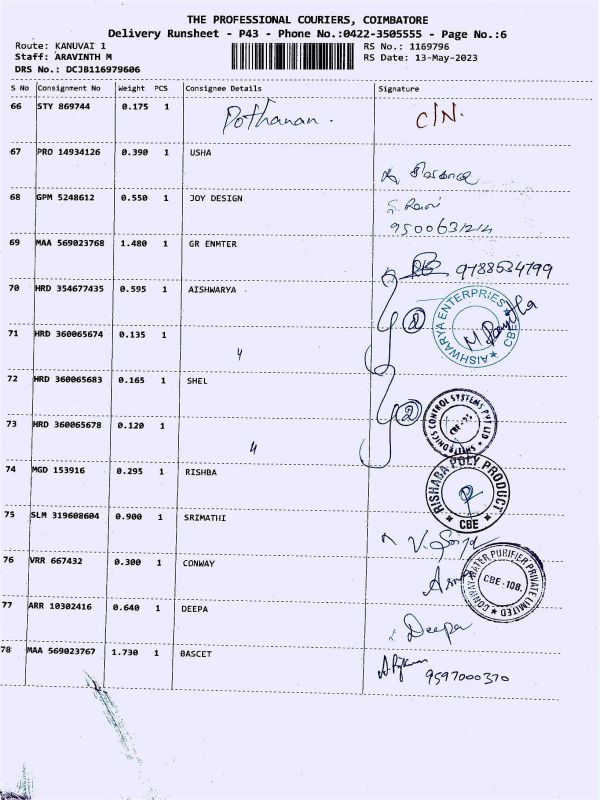 THE PROFESSIONAL COURIERS, COIMBATORE
Delivery Runsheet - P43 - Phone No.:0422-3505555 - Page No.:6
Route: KANUVAI 1 RS No.: 1169796
Staff: ARAVINTH M RS Date: 13-May-2023
DRS No.: DCJB116979606
S No Consignment No Weight PCS Consignee Details Signature
66 STY 869744 0.175 1 Pothanan. C/N.
67 PRO 14934126 0.390 1 USHA
68 GPM 5248612 0.550 1 JOY DESIGN
69 MAA 569023768 1.480 1 GR ENMTER
9788534799
70 HRD 354677435 0.595 1 AISHWARYA
② AISHWARYA ENTERPRIES CBE
71 HRD 360065674 0.135 1 4
72 HRD 360065683 0.165 1 SHEL
② CONTROL SYSTEMS PVT LTD
73 HRD 360065678 0.120 1 4
74 MGD 153916 0.295 1 RISHBA
RISHABA POLY PRODUCT CBE
75 SLM 319608604 0.900 1 SRIMATHI
76 VRR 667432 0.300 1 CONWAY
CONWAY WATER PURIFIER PRIVATE LIMITED CBE-108.
77 ARR 10302416 0.640 1 DEEPA
Deepa
78 MAA 569023767 1.730 1 BASCET
9597000370